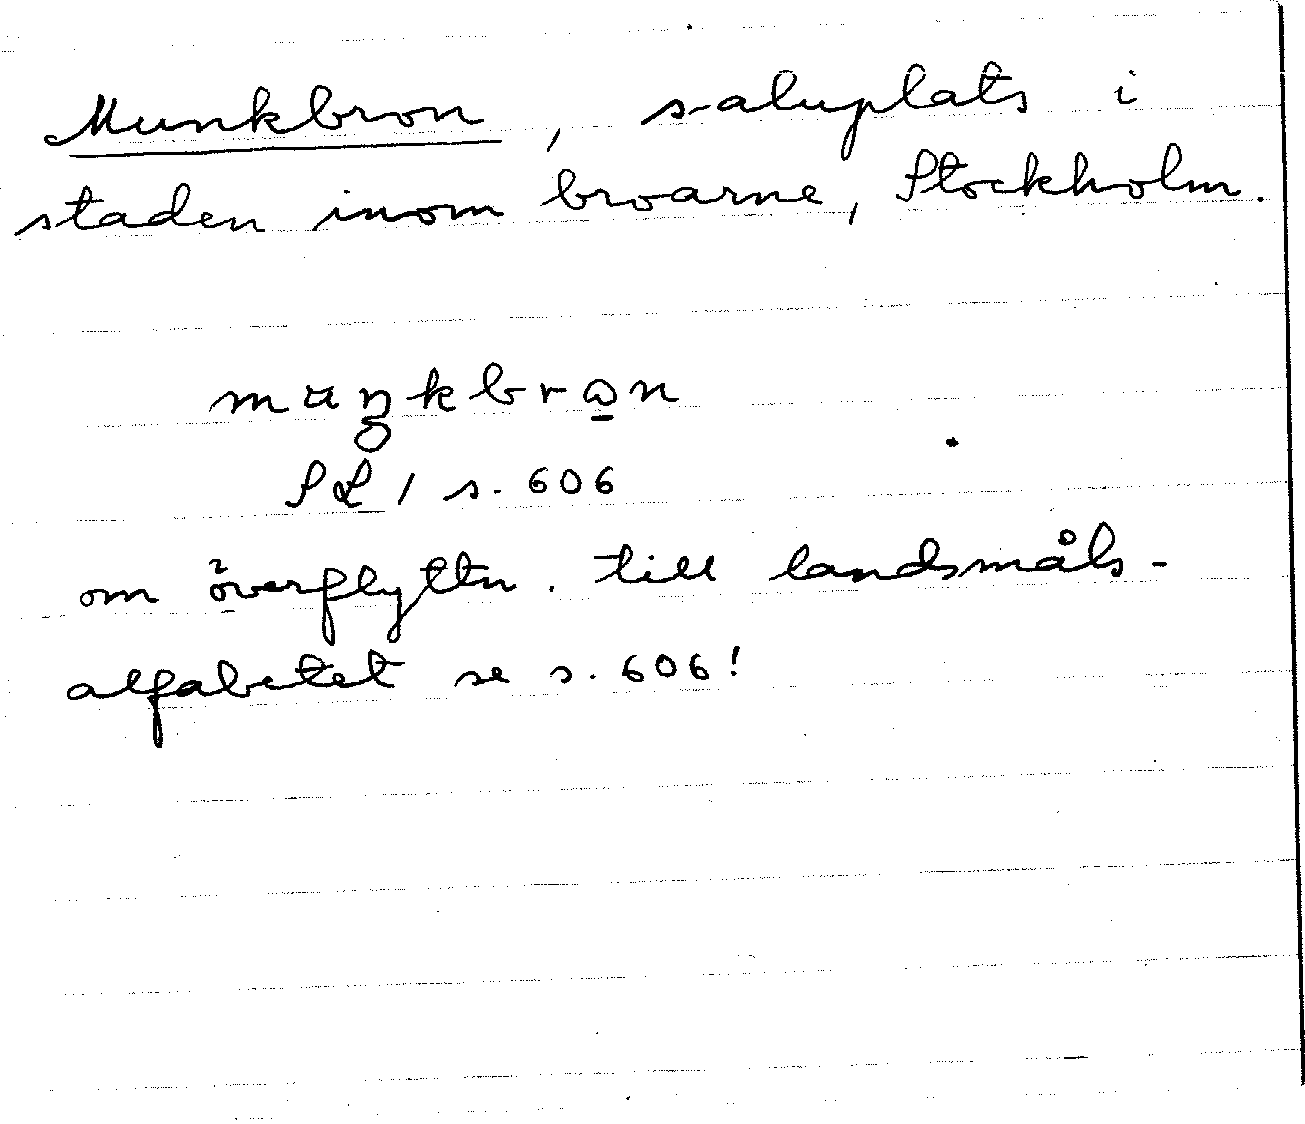 Munkbron, saluplats i
staden inom broarne, Stockholm.
muŋkbron
SL 1 s. 606
om överflyttn. till landsmåls-
alfabetet se s. 606!